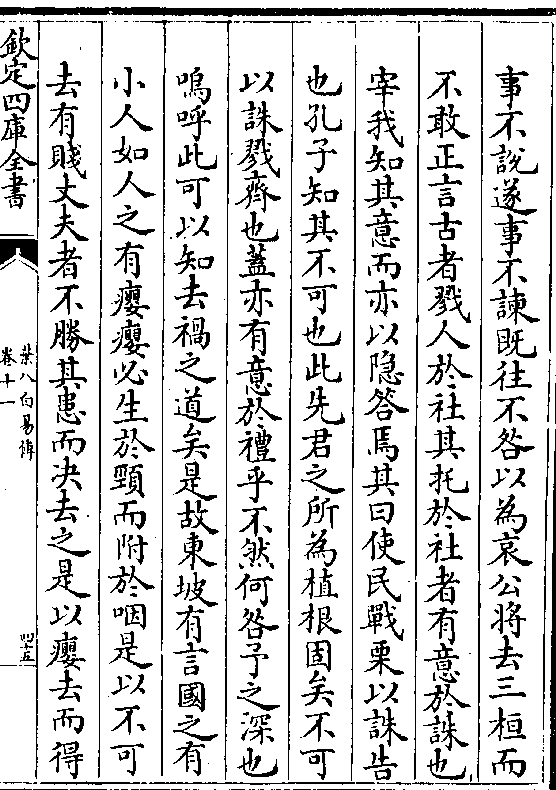 事不說遂事不諫既往不咎以為哀公將去三桓而
不敢正言古者戮人於社其托於社者有意於誅也
宰我知其意而亦以隐答焉其曰使民戰栗以誅告
也孔子知其不可也此先君之所為植根固矣不可
以誅戮齊也蓋亦有意於禮乎不然何咎予之深也
嗚呼此可以知去禍之道矣是故東坡有言國之有
小人如人之有癭癭必生於頸而附於咽是以不可
去有賤丈夫者不勝其恚而决去之是以癭去而得
欽定四庫全書
葉八白易傳
卷十一
四十五